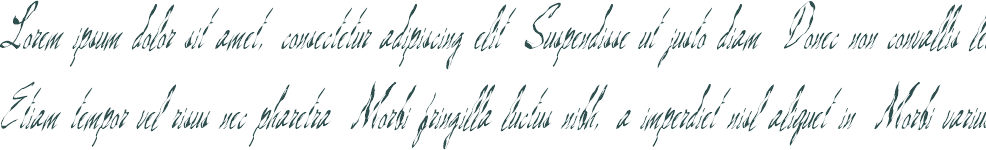 Lorem ipsum dolor sit amet, consectetur adipiscing elit Suspendisse ut justo diam Donec non convallis
Etiam tempor vel risus nec pharetra Morbi fringilla luctus nibh, a imperdiet nisl aliquet in Morbi